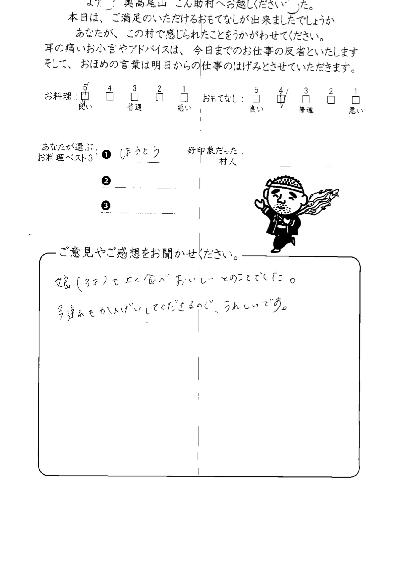 奥高尾山 ごん助村へお越しくださいました。
本日は、ご満足のいただけるおもてなしが出来ましたでしょうか
あなたが、この村で感じられたことをうかがわせてください。
耳の痛いお小言やアドバイスは、今日までのお仕事の反省といたします
そして、おほめの言葉は明日からの仕事のはげみとさせていただきます。
お料理: 5 4 3 2 1 おもてなし: 5 4 3 2 1
良い 普通 悪い 良い 普通 悪い
あなたが選ぶ、
お料理ベスト3: ❶ ほうとう 好印象だった:
村人
❷
❸
ご意見やご感想をお聞かせください。
娘(3才)もよく食べ おいしいとのことでした。
子連れをかんげいしてくださるので、うれしいです。